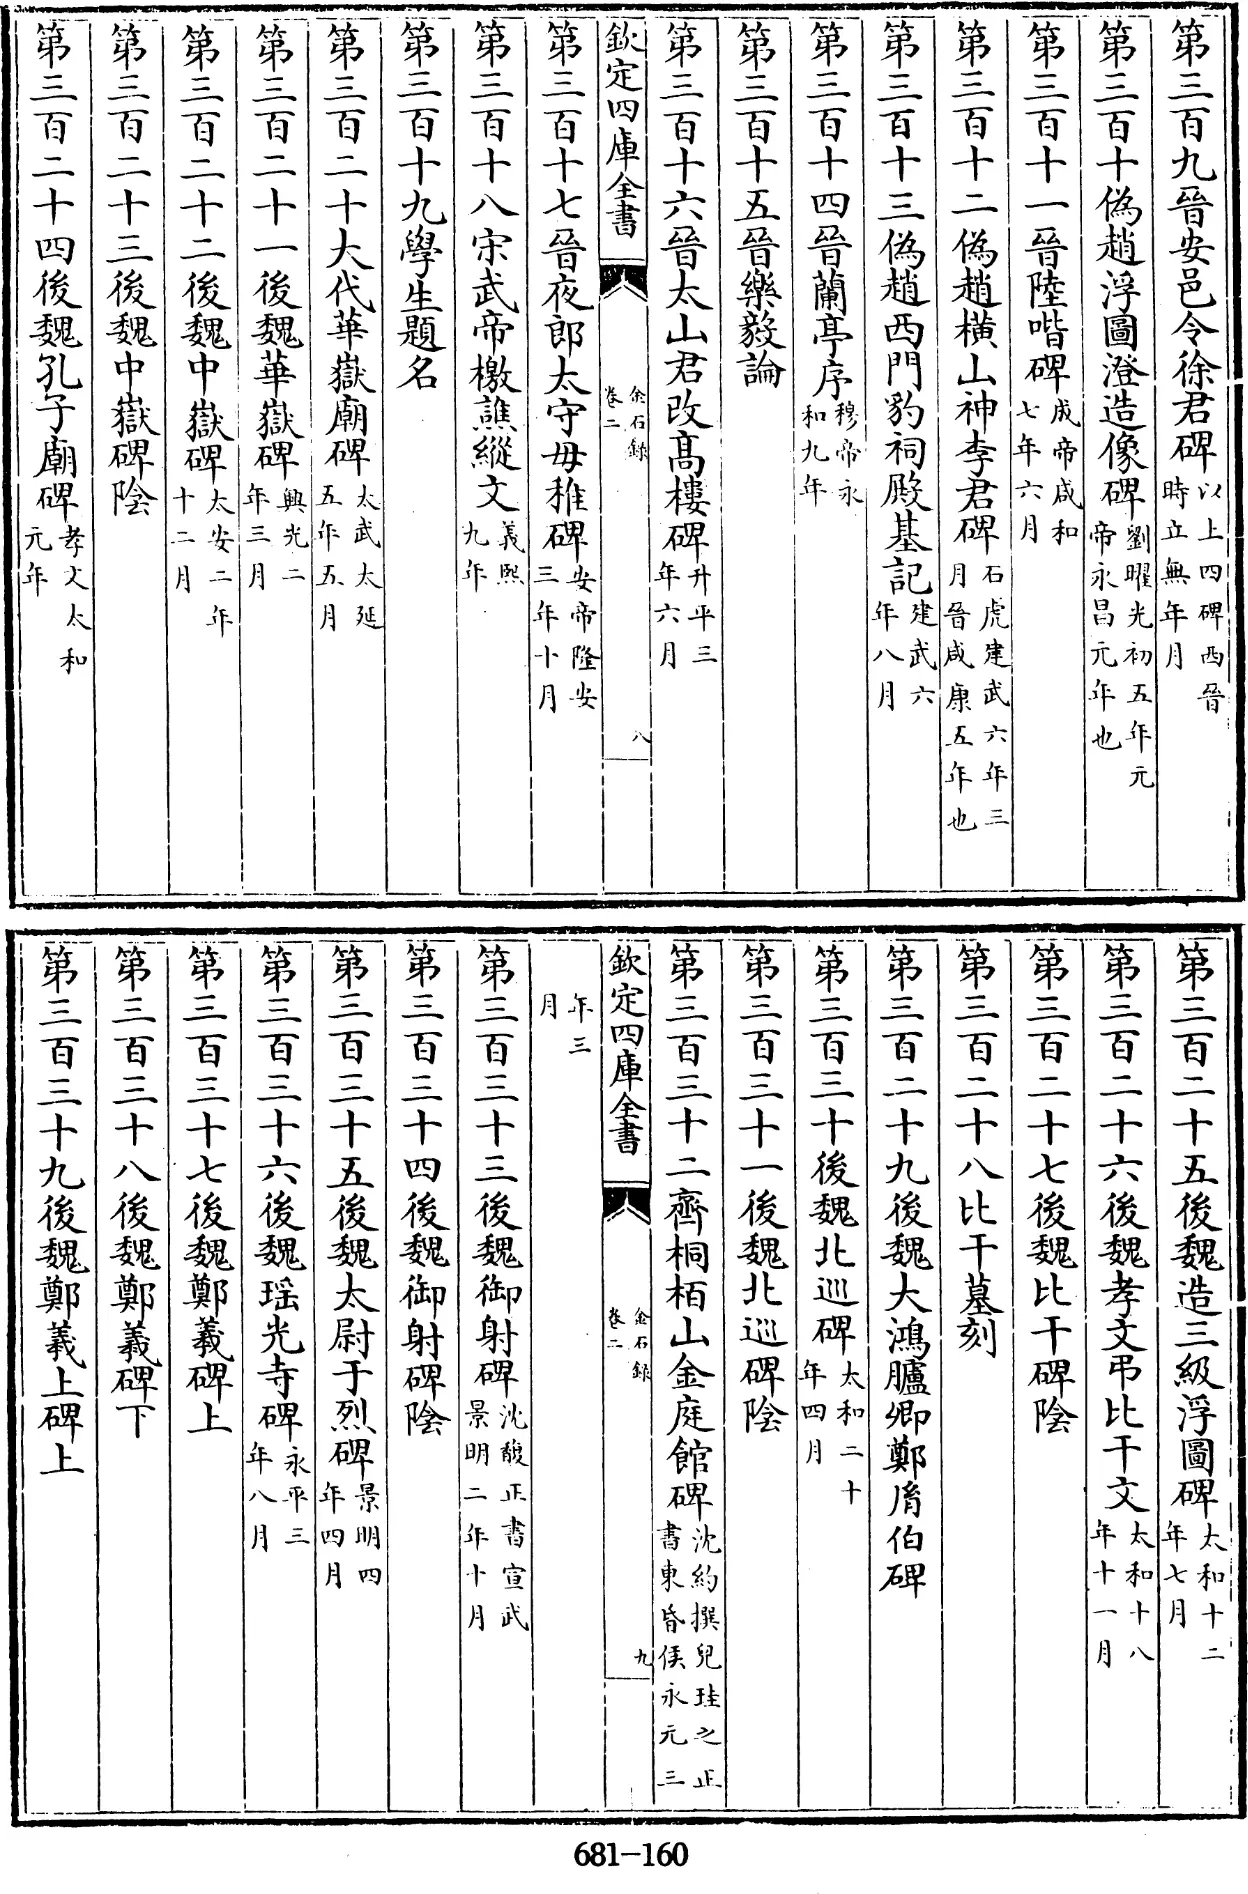 第三百九晉安邑令徐君碑以上四碑西晉時立無年月
第三百十偽趙浮圖澄造像碑劉曜光初五年元帝永昌元年也
第三百十一晉陸喈碑成帝咸和七年六月
第三百十二偽趙橫山神李君碑石虎建武六年三月晉咸康五年也
第三百十三偽趙西門豹祠殿基記建武六年八月
第三百十四晉蘭亭序穆帝永和九年
第三百十五晉樂毅論
第三百十六晉太山君改高樓碑升平三年六月
欽定四庫全書
金石錄
卷二
八
第三百十七晉夜郎太守毋稚碑安帝隆安三年十月
第三百十八宋武帝檄譙縱文義熙九年
第三百十九學生題名
第三百二十大代華嶽廟碑太武太延五年五月
第三百二十一後魏華嶽碑興光二年三月
第三百二十二後魏中嶽碑太安二年十二月
第三百二十三後魏中嶽碑陰
第三百二十四後魏孔子廟碑孝文太和元年
第三百二十五後魏造三級浮圖碑太和十二年七月
第三百二十六後魏孝文弔比干文太和十八年十一月
第三百二十七後魏比干碑陰
第三百二十八比干墓刻
第三百二十九後魏大鴻臚卿鄭胤伯碑
第三百三十後魏北巡碑太和二十年四月
第三百三十一後魏北巡碑陰
第三百三十二齊桐栢山金庭館碑沈約撰兒珪之正書東昏侯永元三
欽定四庫全書
金石錄
卷二
九
年三月
第三百三十三後魏御射碑沈馥正書宣武景明二年十月
第三百三十四後魏御射碑陰
第三百三十五後魏太尉于烈碑景明四年四月
第三百三十六後魏瑶光寺碑永平三年八月
第三百三十七後魏鄭羲碑上
第三百三十八後魏鄭羲碑下
第三百三十九後魏鄭羲上碑上
681-160